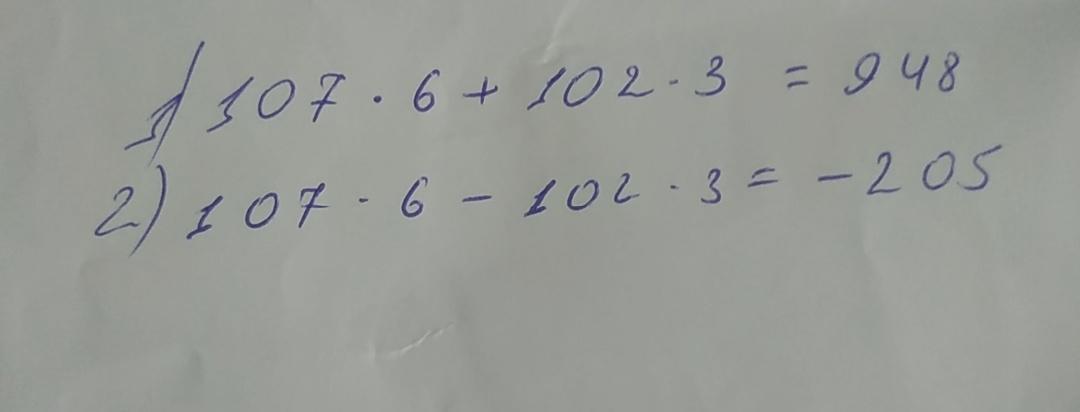 1) 107 · 6 + 102 · 3 = 948
2) 107 · 6 - 102 · 3 = -205